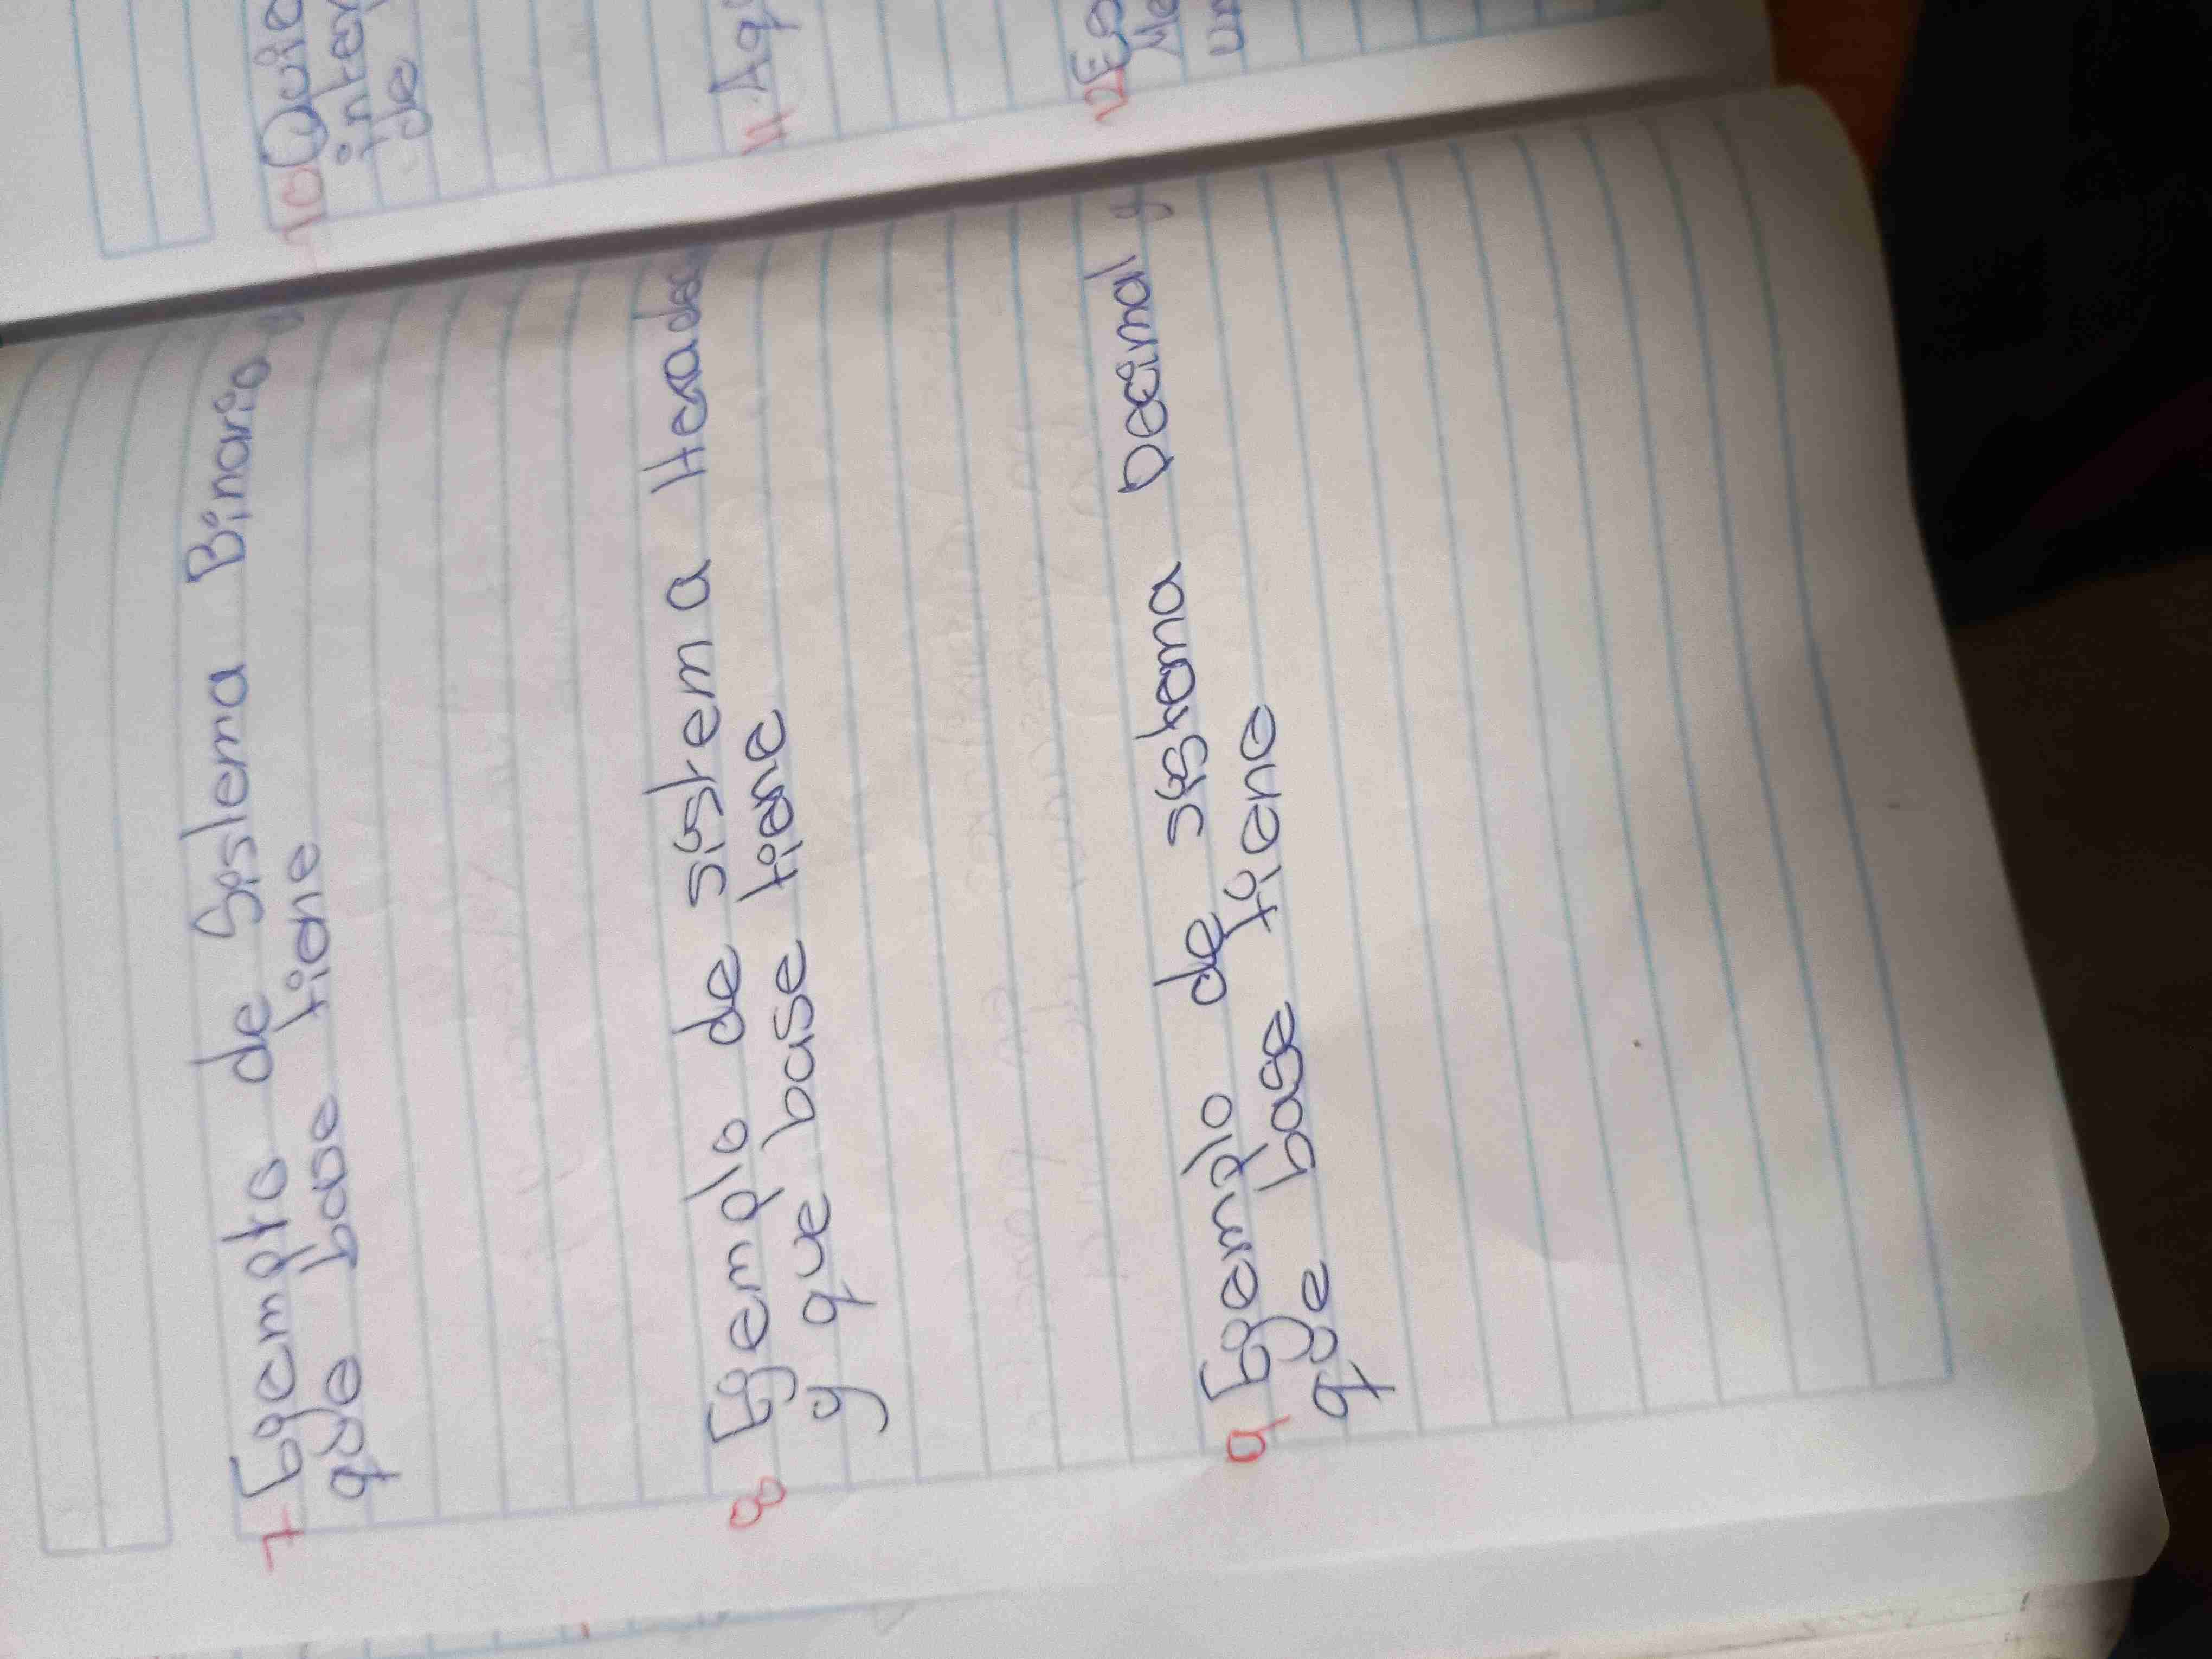 7 Ejemplo de Sistema Binario y
que base tiene
8 Ejemplo de sistema Hexadec
y que base tiene
9 Ejemplo de sistema Decimal y
que base tiene
10 Quie
inter
de
11. Aq
12 Es
Me
un